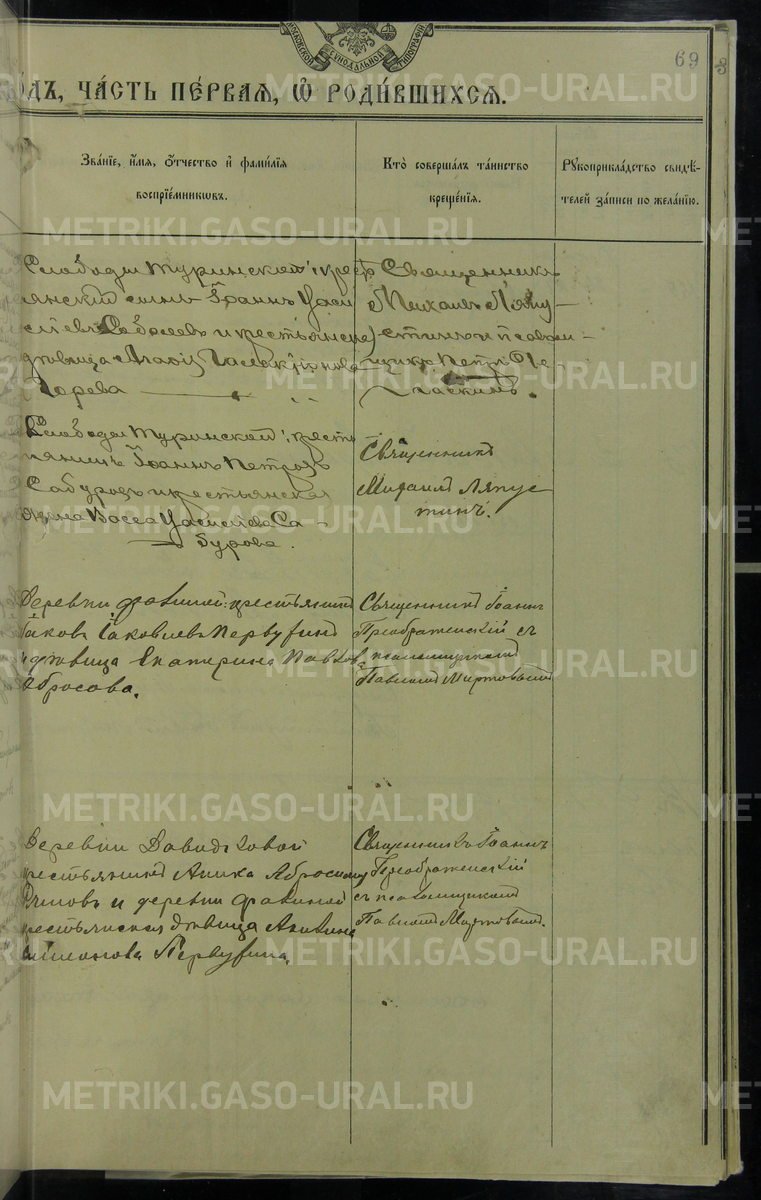 МОСКОВСКОЙ СУНОДАЛЬНОЙ ТИПОГРАФИИ
69
ГО́ДЪ, ЧА́СТЬ ПЕ́РВАЯ, Ѡ҆ РОДИ́ВШИХСЯ.
Зва́нїе, и҆́мѧ, ѻ҆́тчество и҆ фами́лїѧ
воспрїе́мникѡвъ.
Кто̀ соверша́лъ та́инство
креще́нїѧ.
Рꙋкоприкла́дство свидѣ́-
телей за́писи по жела́нїю.
Слободы Туринской крес
янский сынъ Іоаннъ Васи
евъ Соболевъ и крестьянска
дѣвица
Священникъ
Михаилъ Ляпу-
стинъ и псалом-
щикъ Петръ
Слободы Туринской кресть
янинъ Іоаннъ Петровъ
Сабуровъ и крестьянская
жена Васильева Са-
бурова.
Священникъ
Михаилъ Ляпус
тинъ.
Деревни крестьянинъ
Іаковъ Іаковлевъ Первухинъ
и дѣвица Екатерина Павлова
Абросова.
Священникъ Іоаннъ
Преображенскій съ
псаломщикомъ
Павломъ
Деревни Давыдковой
крестьянинъ Аника Абросимовъ
и деревни
крестьянская дѣвица Акилина
Первухина.
Священникъ Іоаннъ
Преображенскій
съ псаломщикомъ
Павломъ
METRIKI.GASO-URAL.RU